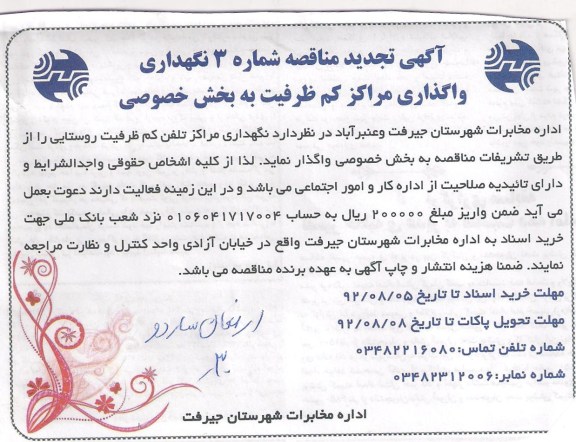 آگهی تجدید مناقصه شماره ۳ نگهداری
واگذاری مراکز کم ظرفیت به بخش خصوصی
اداره مخابرات شهرستان جیرفت وعنبرآباد در نظردارد نگهداری مراکز تلفن کم ظرفیت روستایی را از
طریق تشریفات مناقصه به بخش خصوصی واگذار نماید. لذا از کلیه اشخاص حقوقی واجدالشرایط و
دارای تائیدیه صلاحیت از اداره کار و امور اجتماعی می باشد و در این زمینه فعالیت دارند دعوت بعمل
می آید ضمن واریز مبلغ ۲۰۰۰۰۰۰ ریال به حساب ۰۱۰۶۰۴۱۷۱۷۰۰۴ نزد شعب بانک ملی جهت
خرید اسناد به اداره مخابرات شهرستان جیرفت واقع در خیابان آزادی واحد کنترل و نظارت مراجعه
نمایند. ضمنا هزینه انتشار و چاپ آگهی به عهده برنده مناقصه می باشد.
مهلت خرید اسناد تا تاریخ ۹۲/۰۸/۰۵
مهلت تحویل پاکات تا تاریخ ۹۲/۰۸/۰۸
شماره تلفن تماس:۰۳۴۸۲۲۱۶۰۸۰
شماره نمابر:۰۳۴۸۲۳۱۲۰۰۶
ارمغان ساردو
اداره مخابرات شهرستان جیرفت